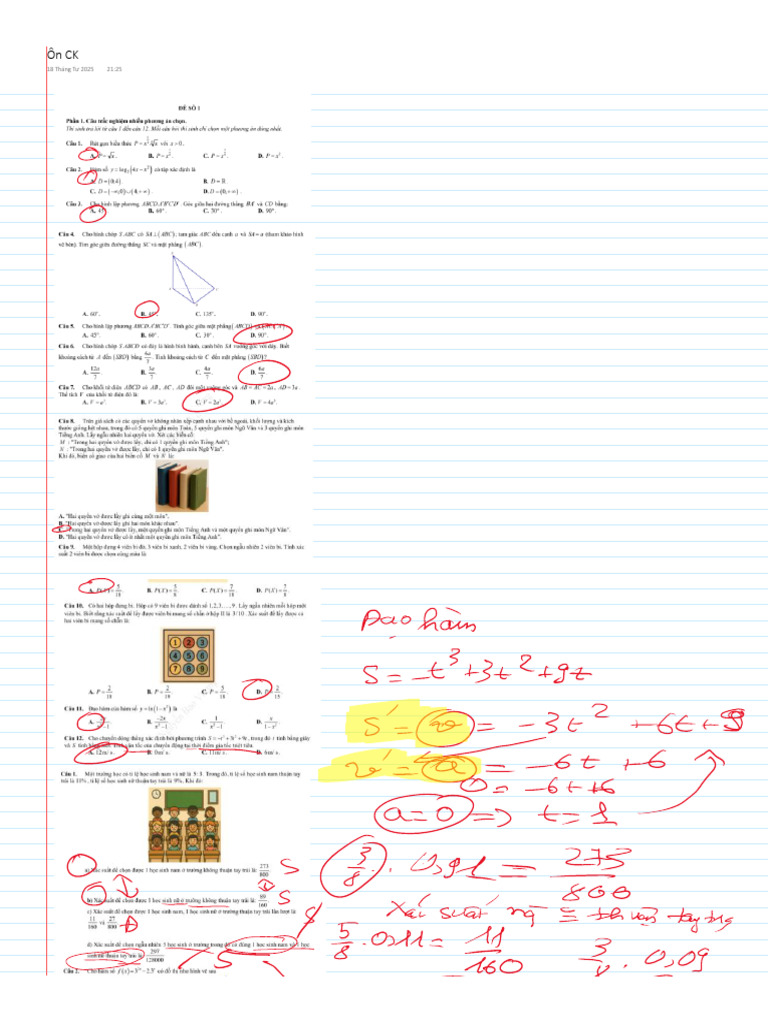 Ôn CK
18 Tháng Tư 2025 21:25
ĐỀ SỐ 1
Phần 1. Câu trắc nghiệm nhiều phương án chọn.
Thí sinh trả lời từ câu 1 đến câu 12. Mỗi câu hỏi thí sinh chỉ chọn một phương án đúng nhất.
Câu 1. Rút gọn biểu thức với x > 0.
Câu 2. Hàm số có tập xác định là
C. D = (-∞;0)∪(4;+∞). D. D = (0;+∞).
Câu 3. Cho hình lập phương ABCD.A'B'C'D'. Góc giữa hai đường thẳng BA' và CD bằng:
A. 45°. B. 60°. C. 30°. D. 90°.
Câu 4. Cho hình chóp S.ABC có SA ⊥ (ABC), tam giác ABC đều cạnh a và SA = a (tham khảo hình
vẽ bên). Tìm góc giữa đường thẳng SC và mặt phẳng (ABC).
A. 60°. B. 45°. C. 135°. D. 90°.
Câu 5. Cho hình lập phương ABCD.A'B'C'D'. Tính góc giữa mặt phẳng (ABCD) và
A. 45°. B. 60°. C. 30°. D. 90°.
Câu 6. Cho hình chóp S.ABCD có đáy là hình bình hành, cạnh bên SA vuông góc với đáy. Biết
khoảng cách từ A đến (SBD) bằng 6a/7. Tính khoảng cách từ C đến mặt phẳng (SBD)?
A. 12a/7. B. 3a/7. C. 4a/7. D. 6a/7.
Câu 7. Cho khối tứ diện ABCD có AB, AC, AD đôi một vuông góc và AB = AC = 2a, AD = 3a.
Thể tích V của khối tứ diện đó là
A. V = a³. B. V = 3a³. C. V = 2a³. D. V = 4a³.
Câu 8. Trên giá sách có các quyển vở không nhãn xếp cạnh nhau với bề ngoài, khối lượng và kích
thước giống hệt nhau, trong đó có 5 quyển ghi môn Toán, 3 quyển ghi môn Ngữ Văn và 3 quyển ghi môn
Tiếng Anh. Lấy ngẫu nhiên hai quyển vở. Xét các biến cố:
M: "Trong hai quyển vở được lấy, chỉ có 1 quyển ghi môn Tiếng Anh";
N: "Trong hai quyển vở được lấy, chỉ có 1 quyển ghi môn Ngữ Văn".
Khi đó, biến cố giao của hai biến cố M và N là:
A. "Hai quyển vở được lấy ghi cùng một môn".
B. "Hai quyển vở được lấy ghi hai môn khác nhau".
C. "Trong hai quyển vở được lấy, một quyển ghi môn Tiếng Anh và một quyển ghi môn Ngữ Văn".
D. "Hai quyển vở được lấy có ít nhất một quyển ghi môn Tiếng Anh".
Câu 9. Một hộp đựng 4 viên bi đỏ, 3 viên bi xanh, 2 viên bi vàng. Chọn ngẫu nhiên 2 viên bi. Tính xác
suất 2 viên bi được chọn cùng màu là:
A. P(X) = 5/18. B. P(X) = 5/8. C. P(X) = 7/18. D. P(X) = 7/8.
Câu 10. Có hai hộp đựng bi. Hộp có 9 viên bi được đánh số 1,2,3,...,9. Lấy ngẫu nhiên mỗi hộp một
viên bi. Biết rằng xác suất để lấy được viên bi mang số chẵn ở hộp II là 3/10. Xác suất để lấy được cả
hai viên bi mang số chẵn là:
1 2 3
4 5 6
7 8 9
Câu 11. Đạo hàm của hàm số y = ln(1-x²) là
Câu 12. Cho chuyển động thẳng xác định bởi phương trình S = -t³ + 3t² + 9t, trong đó t tính bằng giây
và S tính bằng mét. Tính vận tốc của chuyển động tại thời điểm gia tốc triệt tiêu.
A. 12m/s. B. 0m/s. C. 11m/s. D. 6m/s.
Câu 1. Một trường học có tỉ lệ học sinh nam và nữ là 5:3. Trong đó, tỉ lệ số học sinh nam thuận tay
trái là 11%, tỉ lệ số học sinh nữ thuận tay trái là 9%. Khi đó:
a) Xác suất để chọn được 1 học sinh nam ở trường không thuận tay trái là 273/800 S
b) Xác suất để chọn được 1 học sinh nữ ở trường không thuận tay trái là 89/160 S
c) Xác suất để chọn được 1 học sinh nam, 1 học sinh nữ ở trường thuận tay trái lần lượt là
11/160 và 27/800 Đ
d) Xác suất để chọn ngẫu nhiên 3 học sinh ở trường trong đó có đúng 1 học sinh nam và 1 học
sinh nữ thuận tay trái là 297/128000 S
Câu 2. Cho hàm số có đồ thị như hình vẽ sau
Đạo hàm
S = -t³ + 3t² + 9t
S' = v = -3t² + 6t + 9
v' = a = -6t + 6
0 = -6t + 6
a = 0 ⇒ t = 1
3/8 . 0,91 = 273/800
5/8 . 0,11 = 11/160